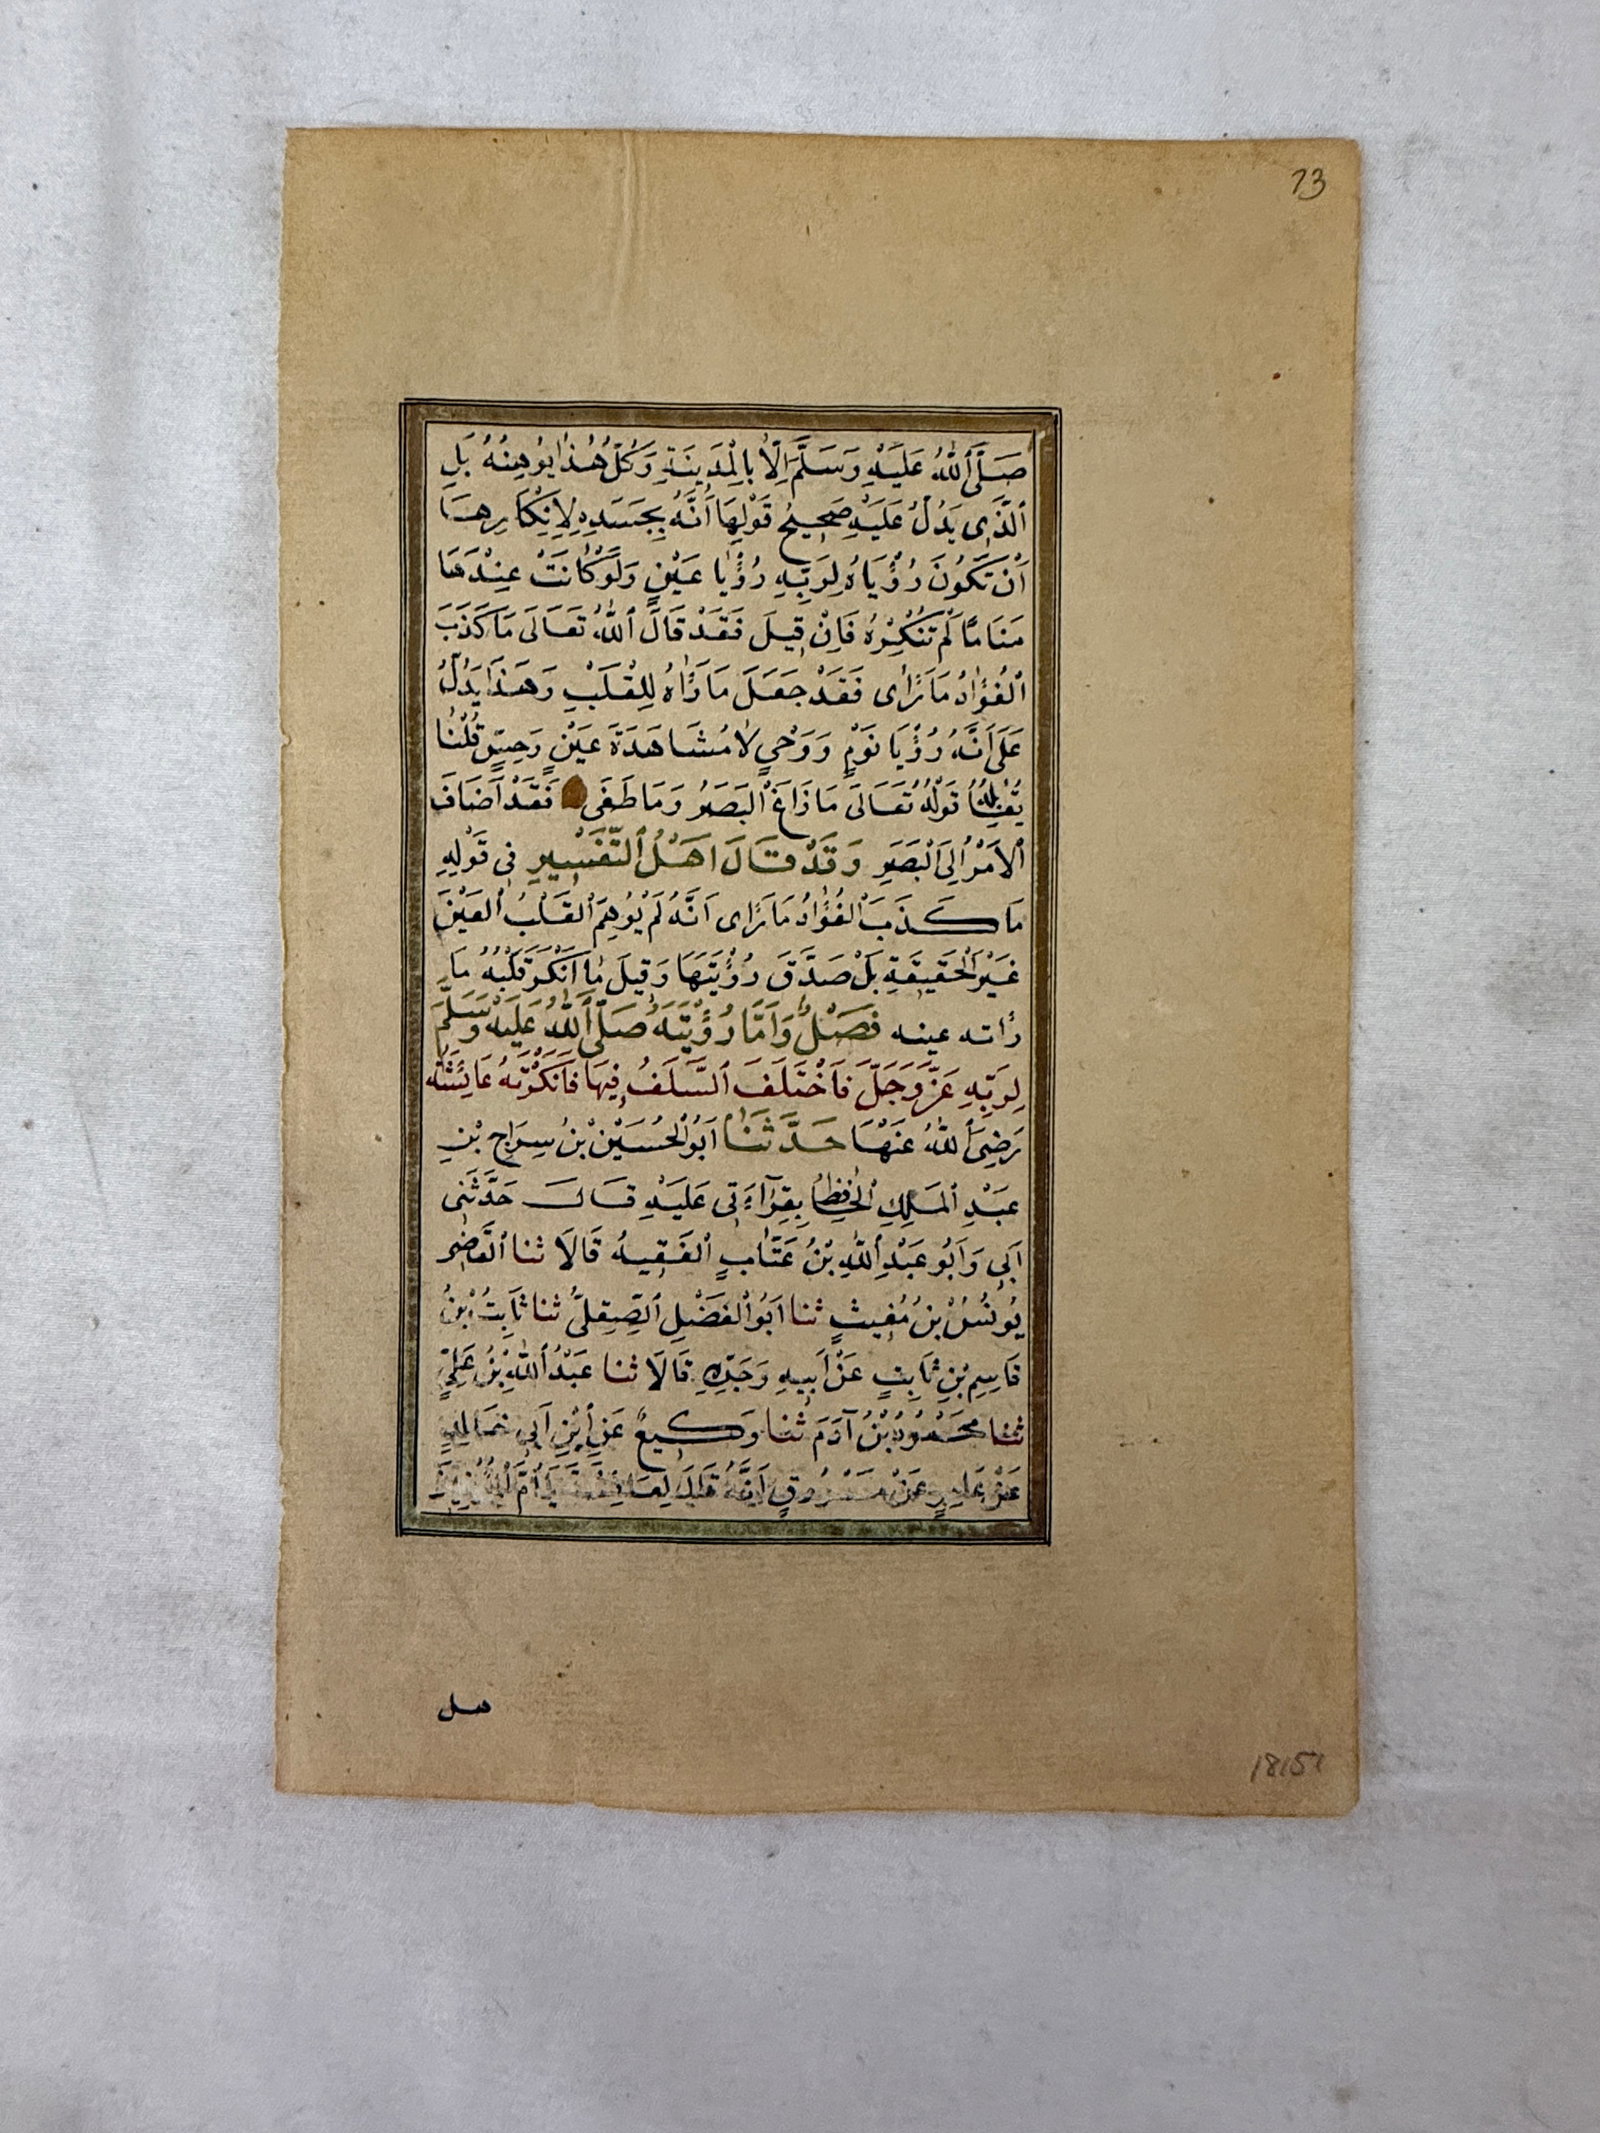 73
صَلَّى ٱللّٰهُ عَلَيْهِ وَسَلَّمَ اِلَّا بِالْمَدِينَةِ وَكُلُّ هٰذَا يُوهِنُهُ بَلِ
ٱلَّذِى يَدُلُّ عَلَيْهِ صَحِيحُ قَوْلِهَا اَنَّهُ بِجَسَدِهِ لِاِنْكَارِهَا
اَنْ تَكُونَ رُؤْيَاهُ لِرَبِّهِ رُؤْيَا عَيْنٍ وَلَوْ كَانَتْ عِنْدَهَا
مَنَامًا لَمْ تُنْكِرْهُ فَاِنْ قِيلَ فَقَدْ قَالَ ٱللّٰهُ تَعَالَى مَا كَذَبَ
ٱلْفُؤَادُ مَا رَأٰى فَقَدْ جَعَلَ مَا رَأٰهُ لِلْقَلْبِ وَهٰذَا يَدُلُّ
عَلَى اَنَّهُ رُؤْيَا نَوْمٍ وَوَحْىٍ لَا مُشَاهَدَةَ عَيْنٍ وَحِسٍّ قُلْنَا
يُقَابِلُهُ قَوْلُهُ تَعَالَى مَا زَاغَ ٱلْبَصَرُ وَمَا طَغَى فَقَدْ اَضَافَ
ٱلْاَمْرَ اِلَى ٱلْبَصَرِ وَقَدْ قَالَ اَهْلُ ٱلتَّفْسِيرِ فِى قَوْلِهِ
مَا كَذَبَ ٱلْفُؤَادُ مَا رَأٰى اَنَّهُ لَمْ يُوهِمِ ٱلْقَلْبُ ٱلْعَيْنَ
غَيْرَ ٱلْحَقِيقَةِ بَلْ صَدَّقَ رُؤْيَتَهَا وَقِيلَ مَا اَنْكَرَ قَلْبُهُ مَا
رأته عينه فَصْلٌ وَاَمَّا رُؤْيَتُهُ صَلَّى ٱللّٰهُ عَلَيْهِ وَسَلَّمَ
لِرَبِّهِ عَزَّ وَجَلَّ فَاخْتَلَفَ ٱلسَّلَفُ فِيهَا فَاَنْكَرَتْهُ عَائِشَةُ
رَضِىَ ٱللّٰهُ عَنْهَا حَدَّثَنَا اَبُو ٱلْحُسَيْنِ بْنُ سِرَاجِ بْنِ
عَبْدِ ٱلْمَلِكِ ٱلْحَافِظُ بِقِرَآءَتِى عَلَيْهِ قَالَ حَدَّثَنِى
اَبِى وَاَبُو عَبْدِ ٱللّٰهِ بْنُ عَتَّابٍ ٱلْفَقِيهُ قَالَا ثنا ٱلْقَاضِى
يُونُسُ بْنُ مُغِيثٍ ثنا اَبُو ٱلْفَضْلِ ٱلصِّقِلِّىُّ ثنا ثَابِتُ بْنُ
قَاسِمِ بْنِ ثَابِتٍ عَنْ اَبِيهِ وَجَدِّهِ قَالَا ثنا عَبْدُ ٱللّٰهِ بْنُ عَلِىٍّ
ثنا مَحْمُودُ بْنُ آدَمَ ثنا وَكِيعٌ عَنِ ٱبْنِ اَبِى خَالِدٍ
عَنْ عَامِرٍ عَنْ مَسْرُوقٍ اَنَّهُ قَالَ لِعَائِشَةَ يَا اُمَّ
هل
18151